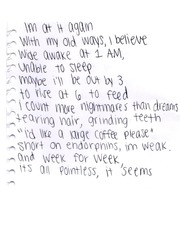 Im at it again
With my old ways, I believe
Wide awake at 1 AM,
Unable to sleep
maybe i'll be out by 3
to rise at 6 to feed
I count more nightmares than dreams
tearing hair, grinding teeth
"i'd like a large coffee please"
short on endorphins, im weak.
and week for week,
it's all pointless, it seems